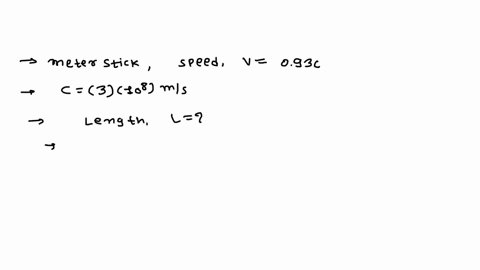 → meter stick, speed, V = 0.93c
→ C = (3)(10⁸) m/s
→ Length, L = ?
→